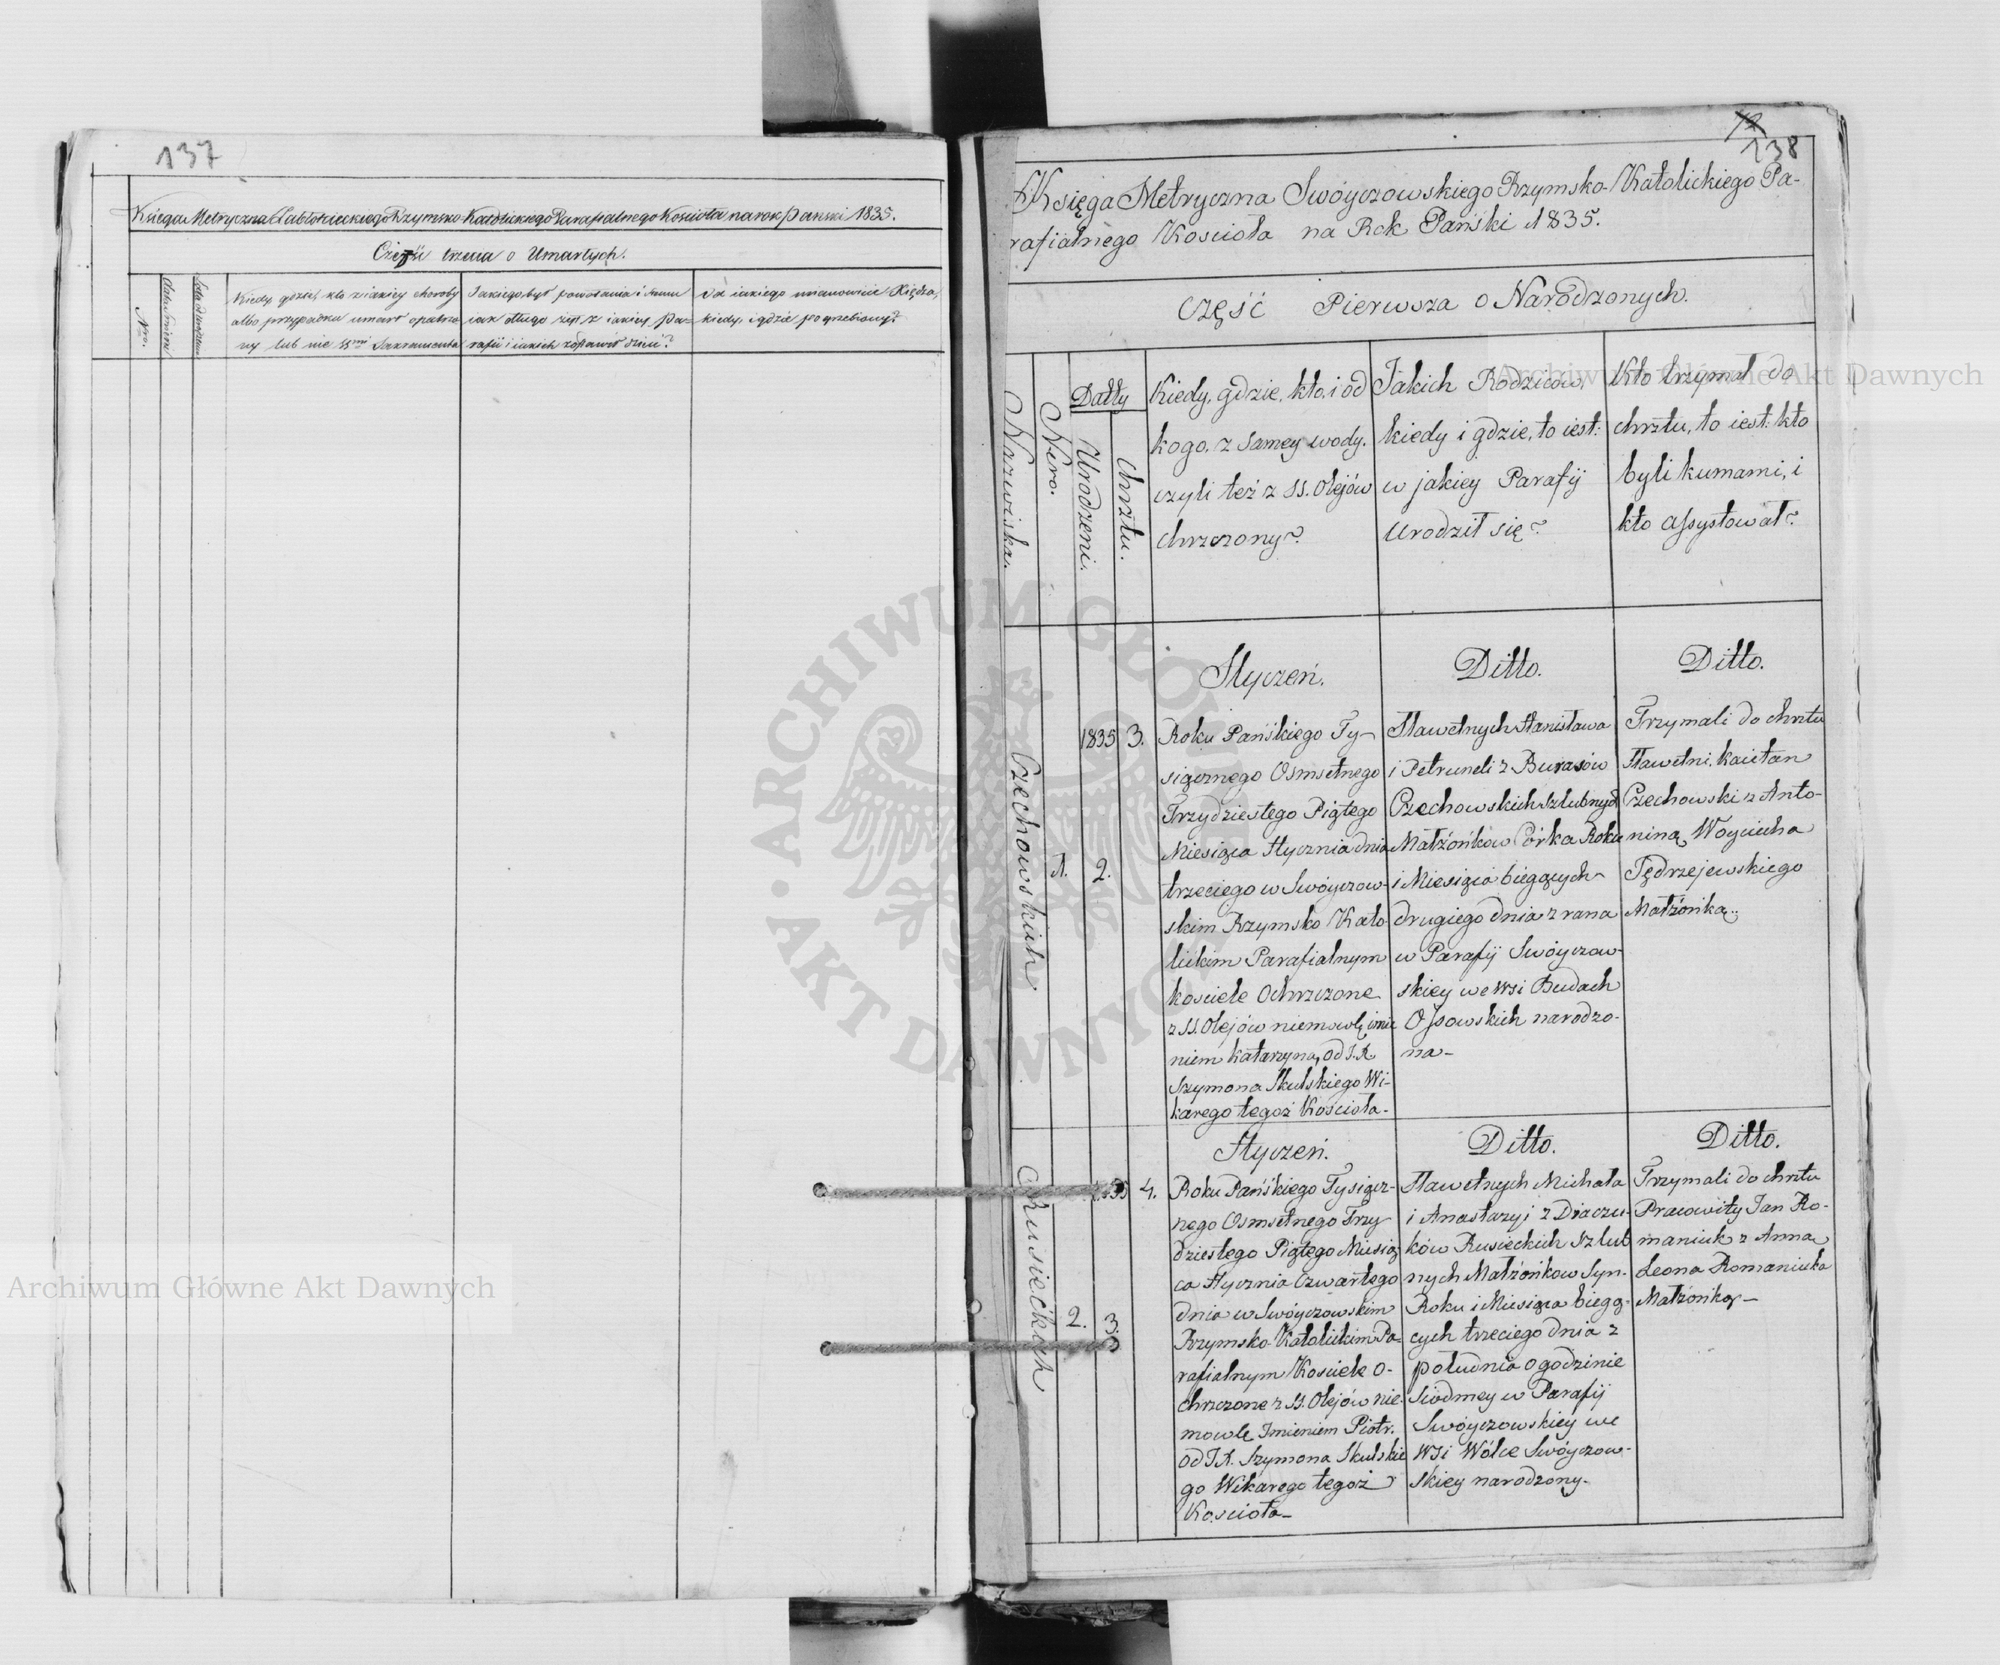 137
Księga Metryczna Zabłotieckiego Rzymsko Katolickiego Parafialnego Kościoła na rok Panski 1835.
Część trzecia o Umarłych.
Nro.
Data Smierci
Kiedy, gdzie, kto z iakiey choroby
albo przypadku umarł opatrzo
ny lub nie SS.mi Sakramenta
Jakiego był powołania i stanu
iak długo żył z iakiey Pa-
rafii i iakich zostawił dzieci?
Od iakiego mianowicie Księdza,
kiedy, i gdzie pogrzebiony?
138
Księga Metryczna Swóyczowskiego Rzymsko-Katolickiego Pa-
rafialnego Kościoła na Rok Pański 1835.
Część Pierwsza o Narodzonych.
Nazwiska.
Nro.
Datty
Urodzeni.
Chrztu.
Kiedy, gdzie, kto, i od
kogo, z samey wody,
czyli też z SS. Olejów
chrzczony?
Jakich Rodziców,
kiedy i gdzie, to iest:
w jakiey Parafij
urodził się?
Kto trzymał do
chrztu, to iest: kto
byli kumami, i
kto assystował?
Czechowskich
1.
1835
2.
3.
Styczeń.
Roku Pańskiego Ty-
siącznego Osmsetnego
Trzydziestego Piątego
Miesiąca Stycznia dnia
trzeciego w Swóyczow-
skim Rzymsko Kato
lickim Parafialnym
kościele Ochrzczone
z SS. Olejów niemowlę imie
niem Katarzyna, od J.X.
Szymona Skulskiego Wi-
karego tegoż Kościoła-
Ditto.
Sławetnych Stanisława
i Petruneli z Burasów
Czechowskich Szlubnych
Małżónków Córka Roku
i Miesiąca bieggących
drugiego dnia z rana
w Parafij Swóyczow-
skiey we wsi Budach
Ossowskich narodzo-
na-
Ditto.
Trzymali do chrztu
Sławetni, Kaietan
Czechowski z Anto-
niną Woyciecha
Jędrzejewskiego
Małżónką.
Rusieckich
2.
3.
4.
Styczeń.
Roku Pańskiego Tysiącz-
nego Osmsetnego Trzy
dziestego Piątego Miesią
ca Stycznia Czwartego
dnia w Swóyczowskim
Rzymsko-Katolickim Pa-
rafialnym Kościele O-
chrzczone z SS. Olejów nie-
mowlę Imieniem Piotr.
od J.X. Szymona Skulskie
go Wikarego tegoż
Kościoła-
Ditto.
Sławetnych Michała
i Anastazyi z Diaczu-
ków Rusieckich Szlub
nych Małżónkow Syn-
Roku i Miesiąca biegą-
cych trzeciego dnia z
południa o godzinie
siódmey w Parafij
Swóyczowskiey we
wsi Wólce Swóyczow-
skiey narodzony-
Ditto.
Trzymali do chrztu
Pracowity Jan Ro-
maniuk z Anną
Leona Romaniuka
Małżónką-
Archiwum Główne Akt Dawnych
Archiwum Główne Akt Dawnych
ARCHIWUM GŁÓWNE AKT DAWNYCH